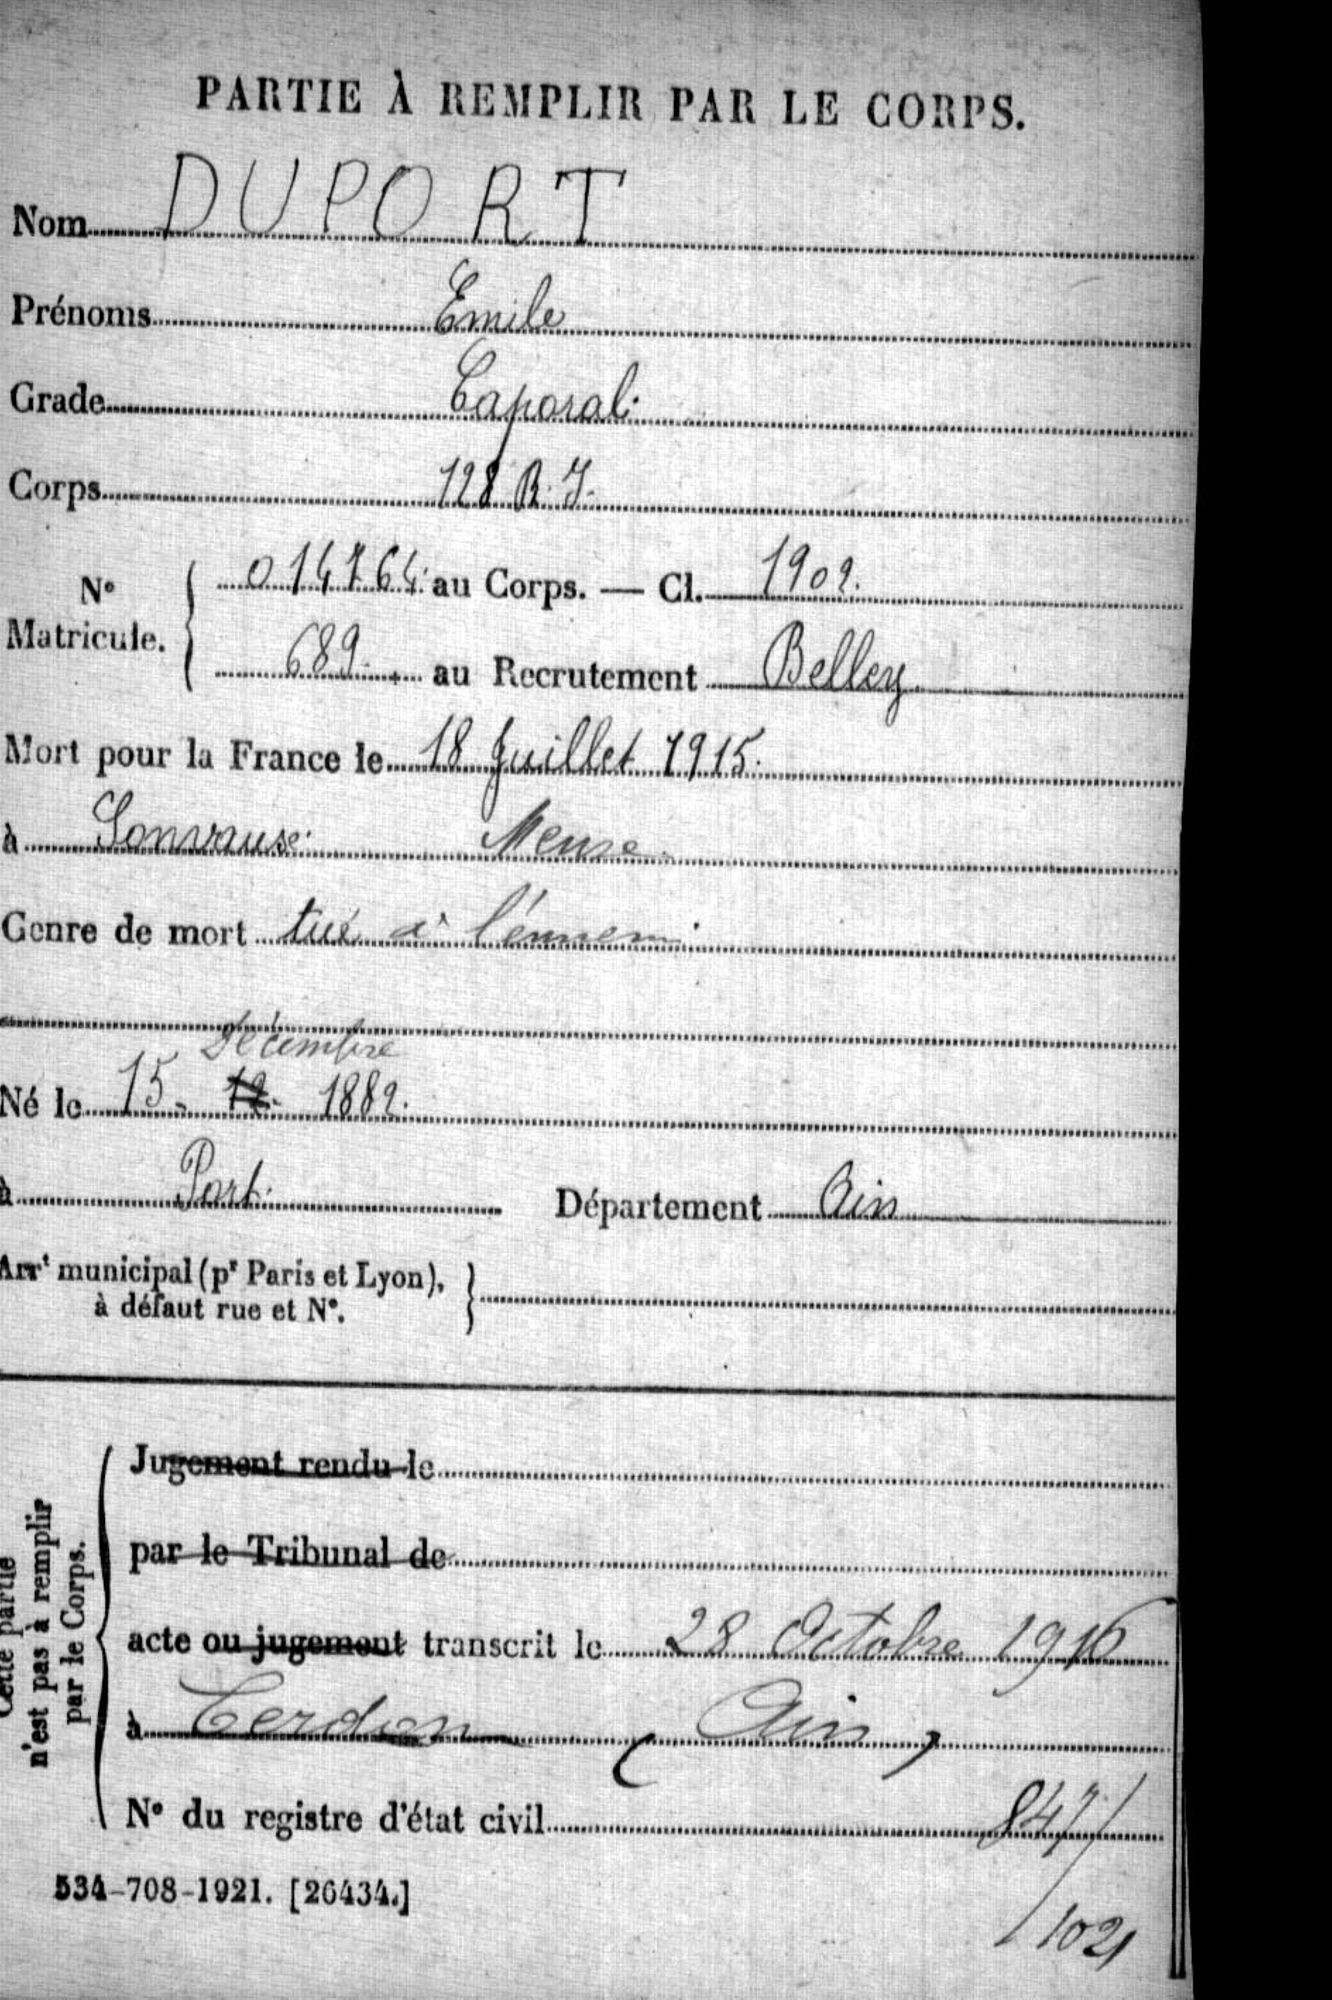 PARTIE À REMPLIR PAR LE CORPS.
Nom DUPORT
Prénoms Emile
Grade Caporal.
Corps 128 R.I.
N° Matricule. 014764 au Corps. — Cl. 1902.
689. au Recrutement Belley
Mort pour la France le 18 Juillet 1915.
à Sonvaux Meuse
Genre de mort tué à l'ennemi
Décembre
Né le 15 - 12 - 1882.
à Port. Département Ain
Arrt municipal (pr Paris et Lyon),
à défaut rue et N°.
Cette partie
n'est pas à remplir
par le Corps.
Jugement rendu le
par le Tribunal de
acte ou jugement transcrit le 28 Octobre 1916
à Cerdon (Ain)
N° du registre d'état civil 847/
534-708-1921. [26434.]
/1021